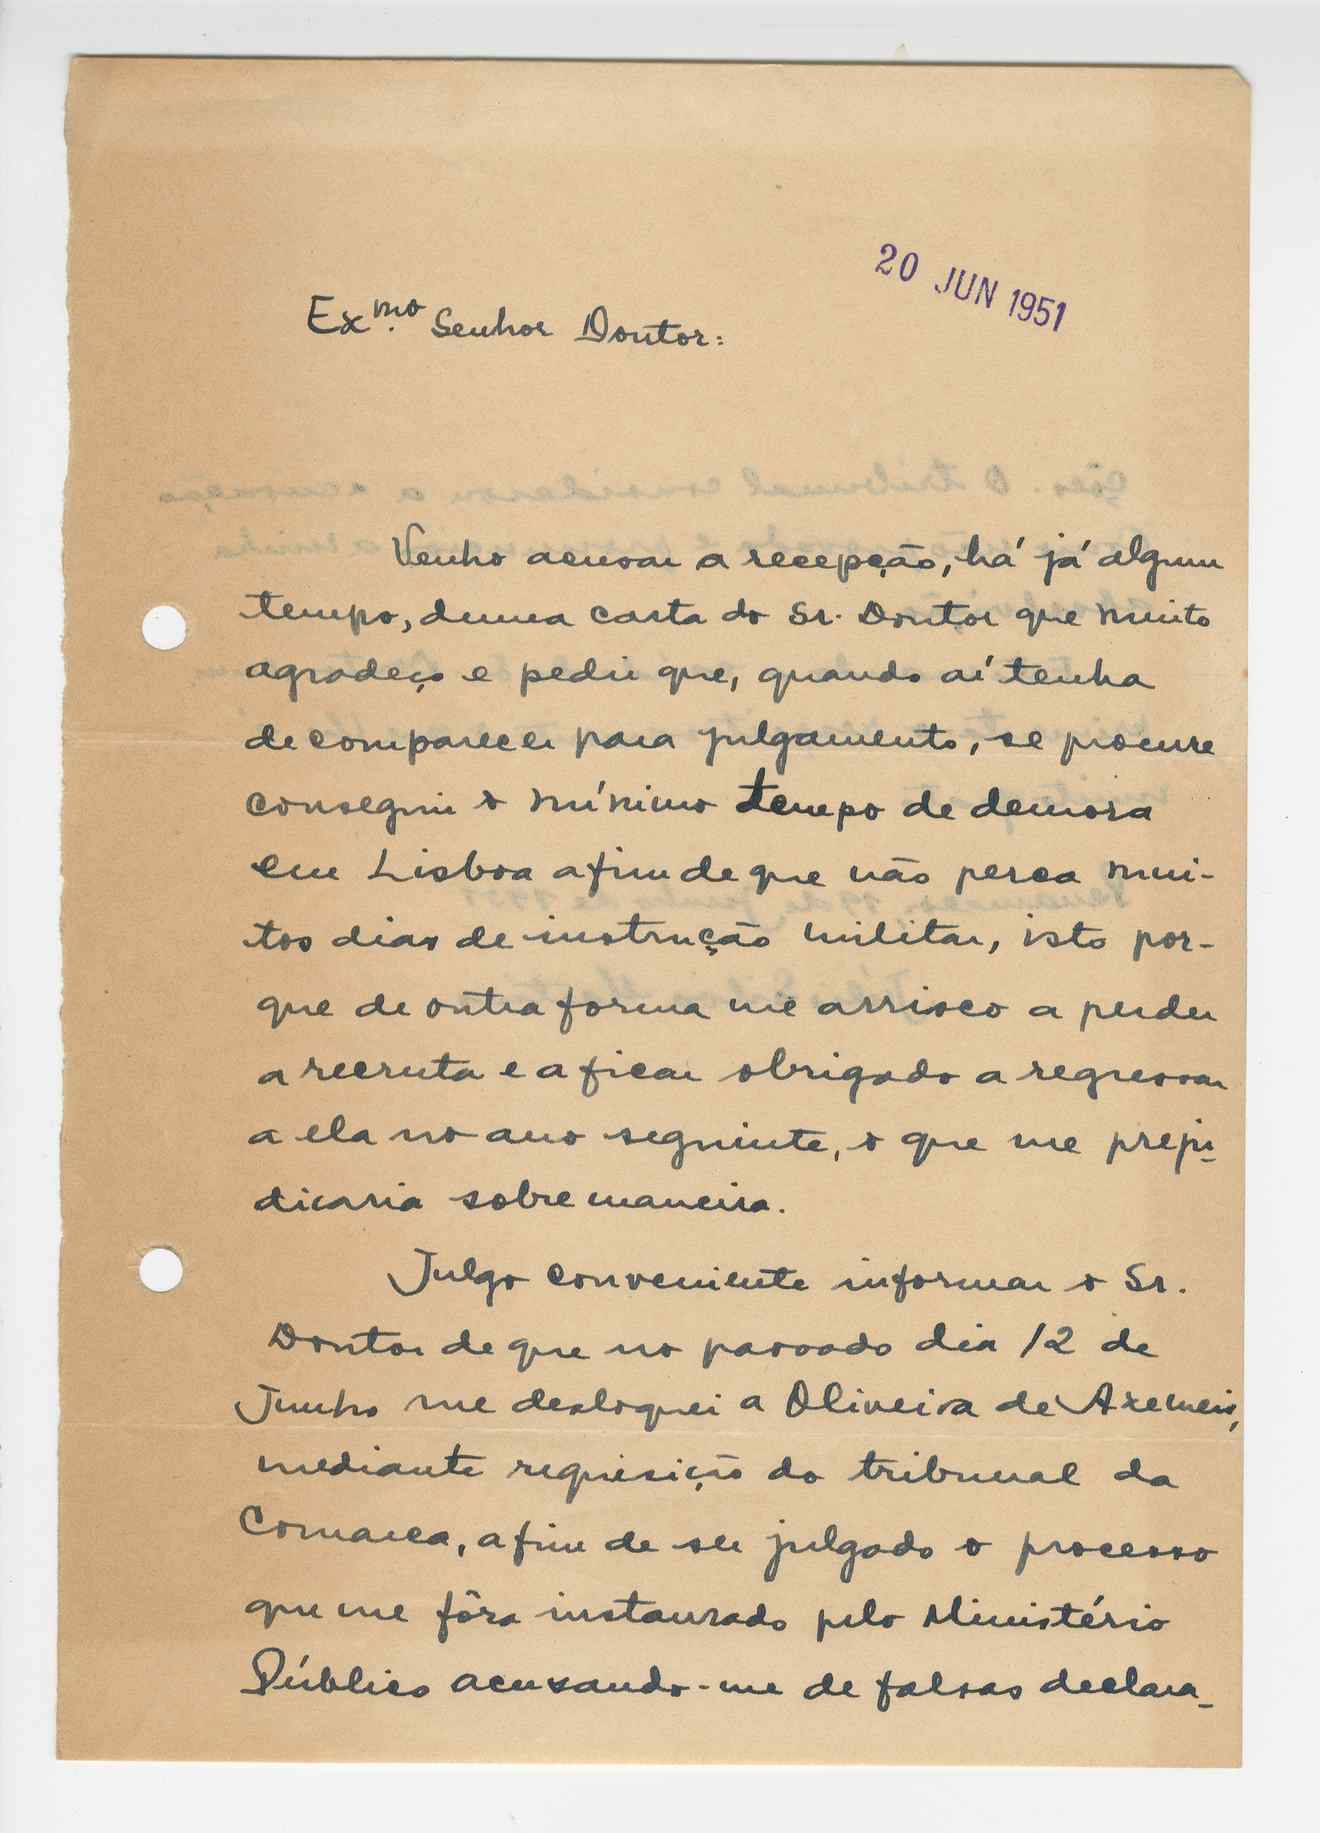 20 JUN 1951
Exmo. Senhor Doutor:
Venho acusar a recepção, há já algum
tempo, duma carta do Sr. Doutor que muito
agradeço e pedir que, quando aí tenha
de comparecer para julgamento, se procure
conseguir o mínimo tempo de demora
em Lisboa afim de que não perca mui-
tos dias de instrução militar, isto por-
que de outra forma me arrisco a perder
a recruta e a ficar obrigado a regressar
a ela no ano seguinte, o que me preju-
dicaria sobremaneira.
Julgo conveniente informar o Sr.
Doutor de que no passado dia 12 de
Junho me desloquei a Oliveira de Azemeis,
mediante requisição do tribunal da
Comarca, afim de ser julgado o processo
que me fôra instaurado pelo Ministério
Público acusando-me de falsas declara-